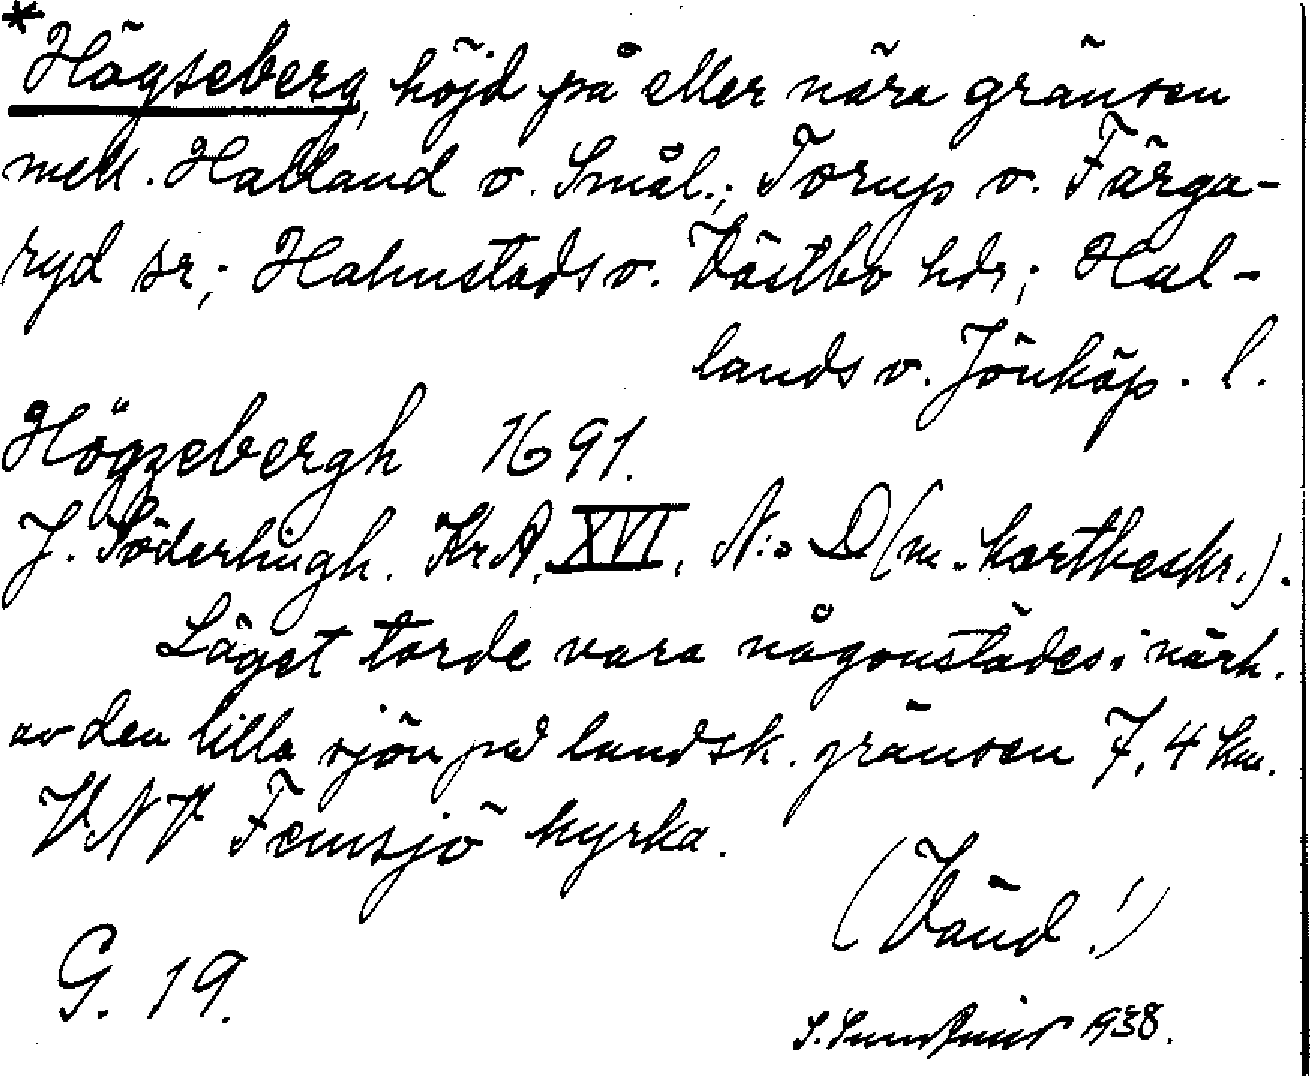 *Högseberg, höjd på eller nära gränsen
mell. Halland o. Smål.; Torup o. Färga-
ryd sr; Halmstads o. Västbo hdr; Hal-
lands o. Jönköp. l.
Högzebergh 1691.
J. Söderhugh. KrA. XVI, N:o D (m. kartbeskr.).
Läget torde vara någonstädes i närh.
av den lilla sjön på landsk. gränsen 7,4 km.
VNV Femsjö kyrka.
(Vänd!)
G. 19.
1938.